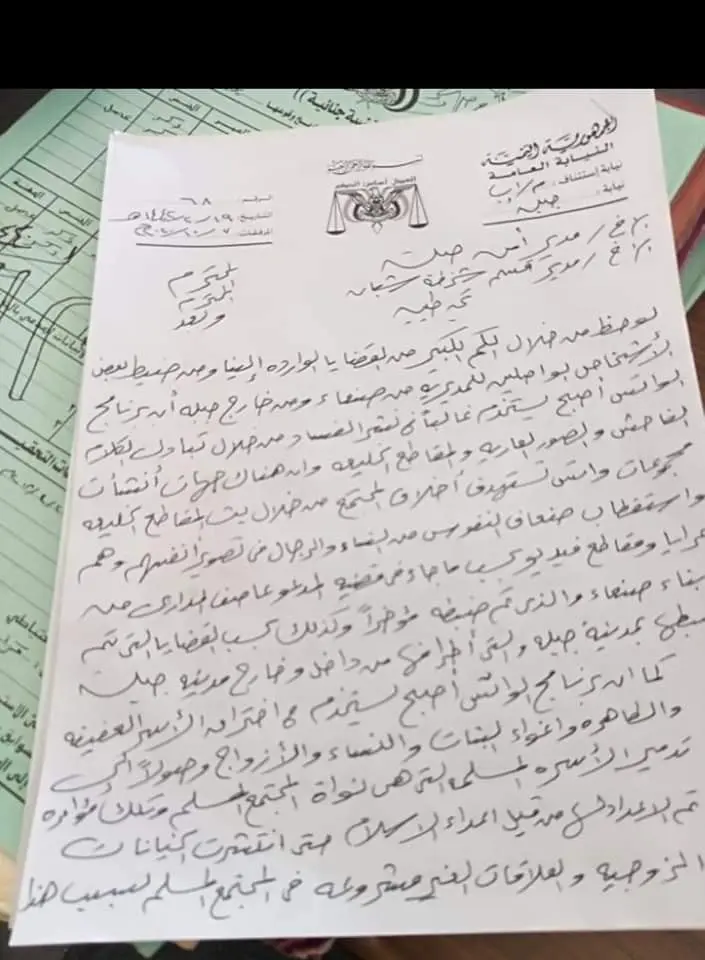 الجمهورية اليمنية
النيابة العامة
نيابة إستئناف: م/إب
نيابة: جبله
العدل أساس الحكم
الرقم: ٦٨
التاريخ: ١٩/
المرفقات:
الأخ/ مدير أمن جبلة المحترم
الأخ/ مدير قسم شرطة شبان المحترم
تحيه طيبه وبعد
لوحظ من خلال الكم الكبير من القضايا الوارده إلينا ومن ضبط بعض
الأشخاص الواصلين للمديريه من صنعاء ومن خارج جبله أن برنامج
الواتس أصبح يستخدم غالباً في نشر الفساد من خلال تبادل الكلام
الفاحش والصور العاريه والمقاطع الخليعه وان هناك جهات أنشأت
مجموعات واتس تستهدف أخلاق المجتمع من خلال بث المقاطع الخليعه
واستقطاب ضعاف النفوس من النساء والرجال في تصوير أنفسهم وهم
عرايا ومقاطع فيديو بحسب ما جاء في قضيه المدعو عاصف من
أبناء صنعاء والذي تم ضبطه مؤخراً وكذلك بحسب القضايا التي تم
ضبطها بمدينة جبله والتي أطرافها من داخل وخارج مدينة جبلة
كما ان برنامج الواتس أصبح يستخدم في اختراق الأسر العفيفه
والطاهره واغواء البنات والنساء والأزواج وصولاً الى
تدمير الأسره المسلمه التي هي نواة المجتمع المسلم وتلك مؤامره
تم الاعداد لها من قبل اعداء الاسلام حتى انتشرت الخيانات
الزوجيه والعلاقات الغير مشروعه في المجتمع المسلم بسبب هذا